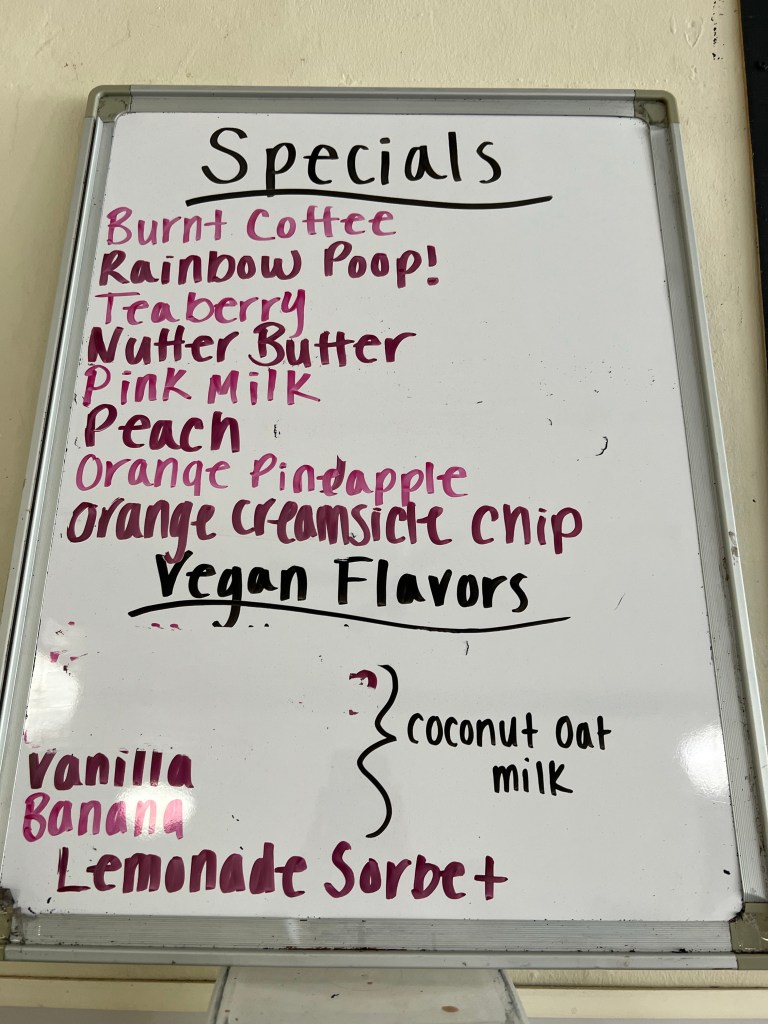 Specials
Burnt Coffee
Rainbow Poop!
Teaberry
Nutter Butter
Pink Milk
Peach
Orange Pineapple
Orange Creamsicle Chip
Vegan Flavors
Vanilla
Banana
coconut oat
milk
Lemonade Sorbet